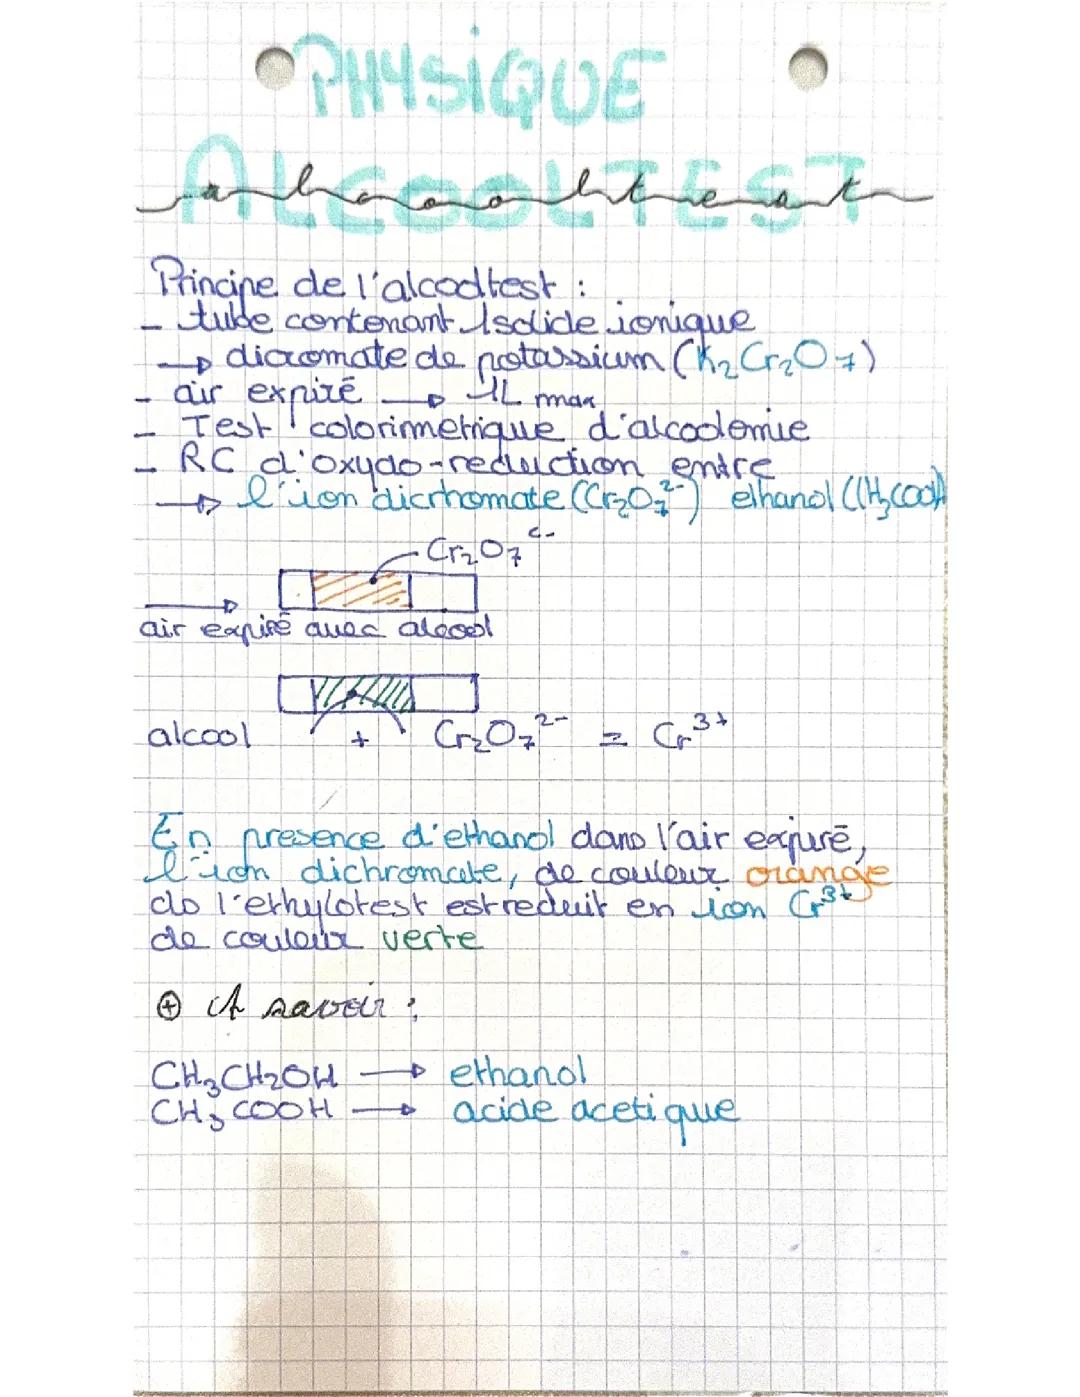 PHYSIQUE
ALCOOLTEST
alcooltest
Principe de l'alcooltest :
- tube contenant 1 solide ionique
→ dicromate de potassium (K₂Cr₂O₇)
- air expiré → 1L max
- Test colorimetrique d'alcoolemie
- RC d'oxydo-reduction entre
→ l'ion dicrhomate (Cr₂O₇²⁻) ethanol (CH₃COOH
Cr₂O₇²⁻
air expiré avec alcool
alcool + Cr₂O₇²⁻ = Cr³⁺
En presence d'ethanol dans l'air expiré,
l'ion dichromate, de couleur orange
do l'ethylotest est reduit en ion Cr³⁺
de couleur verte
⊕ A savoir :
CH₃CH₂OH → ethanol
CH₃COOH → acide acetique